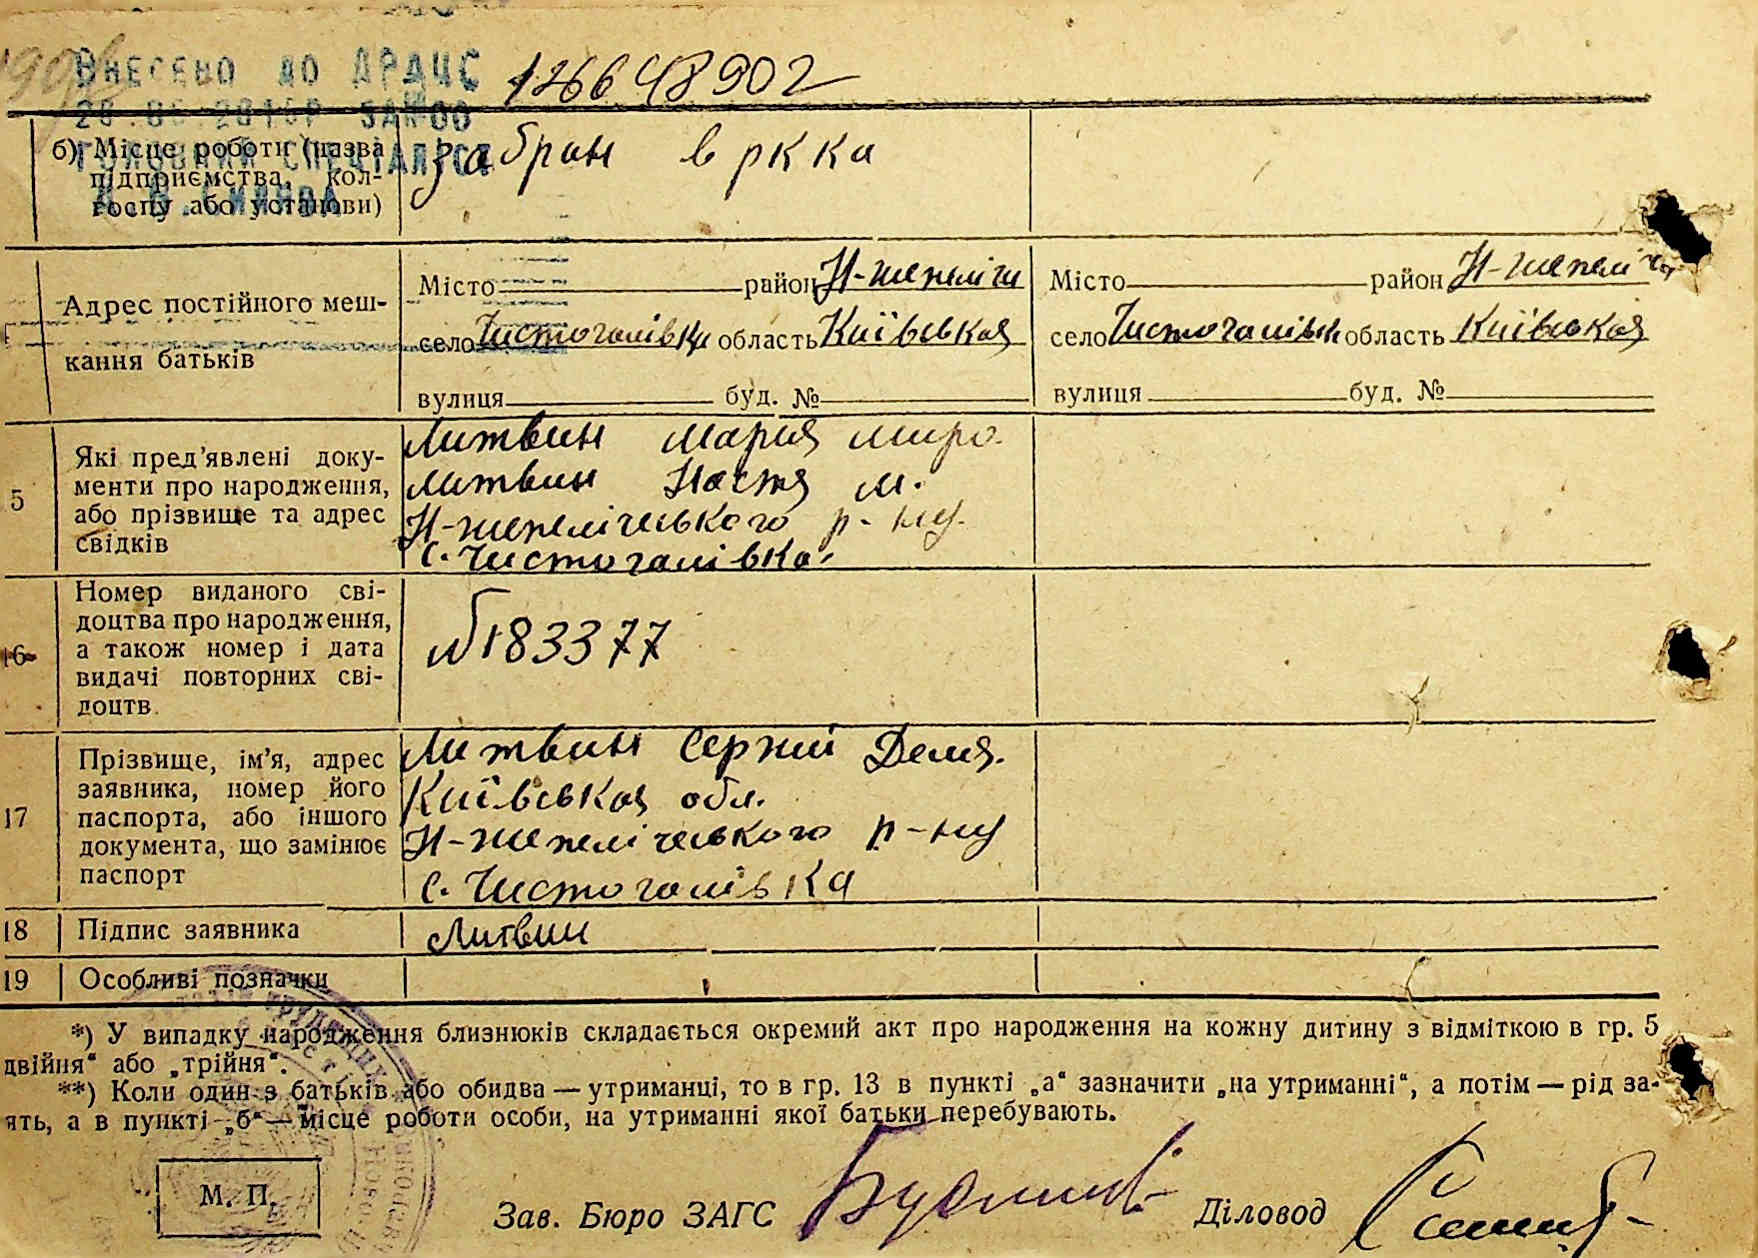 Внесено до ДРАЦС
126648902
б) Місце роботи (назва підприємства, колгоспу або установи)
забран в ркка
Адрес постійного мешкання батьків
Місто район Н-шепелічи
село Чистогалівка область Київськая
вулиця буд. №
Місто район Н-шепеліч
село Чистогалівк область Київськая
вулиця буд. №
5
Які пред'явлені документи про народження, або прізвище та адрес свідків
Литвин Мария миро.
Литвин Настя м.
Н-шепелічеського р-ну.
с. Чистогалівка.
16
Номер виданого свідоцтва про народження, а також номер і дата видачі повторних свідоцтв
№183377
17
Прізвище, ім'я, адрес заявника, номер його паспорта, або іншого документа, що замінює паспорт
Литвин Сергий Демя.
Київськая обл.
Н-шепелічеського р-ну
с. Чистогалівка
18
Підпис заявника
Литвин
19
Особливі позначки
*) У випадку народження близнюків складається окремий акт про народження на кожну дитину з відміткою в гр. 5
двійня“ або „трійня“.
**) Коли один з батьків або обидва — утриманці, то в гр. 13 в пункті „а“ зазначити „на утриманні“, а потім — рід за-
ять, а в пункті „б“ — місце роботи особи, на утриманні якої батьки перебувають.
М. П.
Зав. Бюро ЗАГС
Діловод